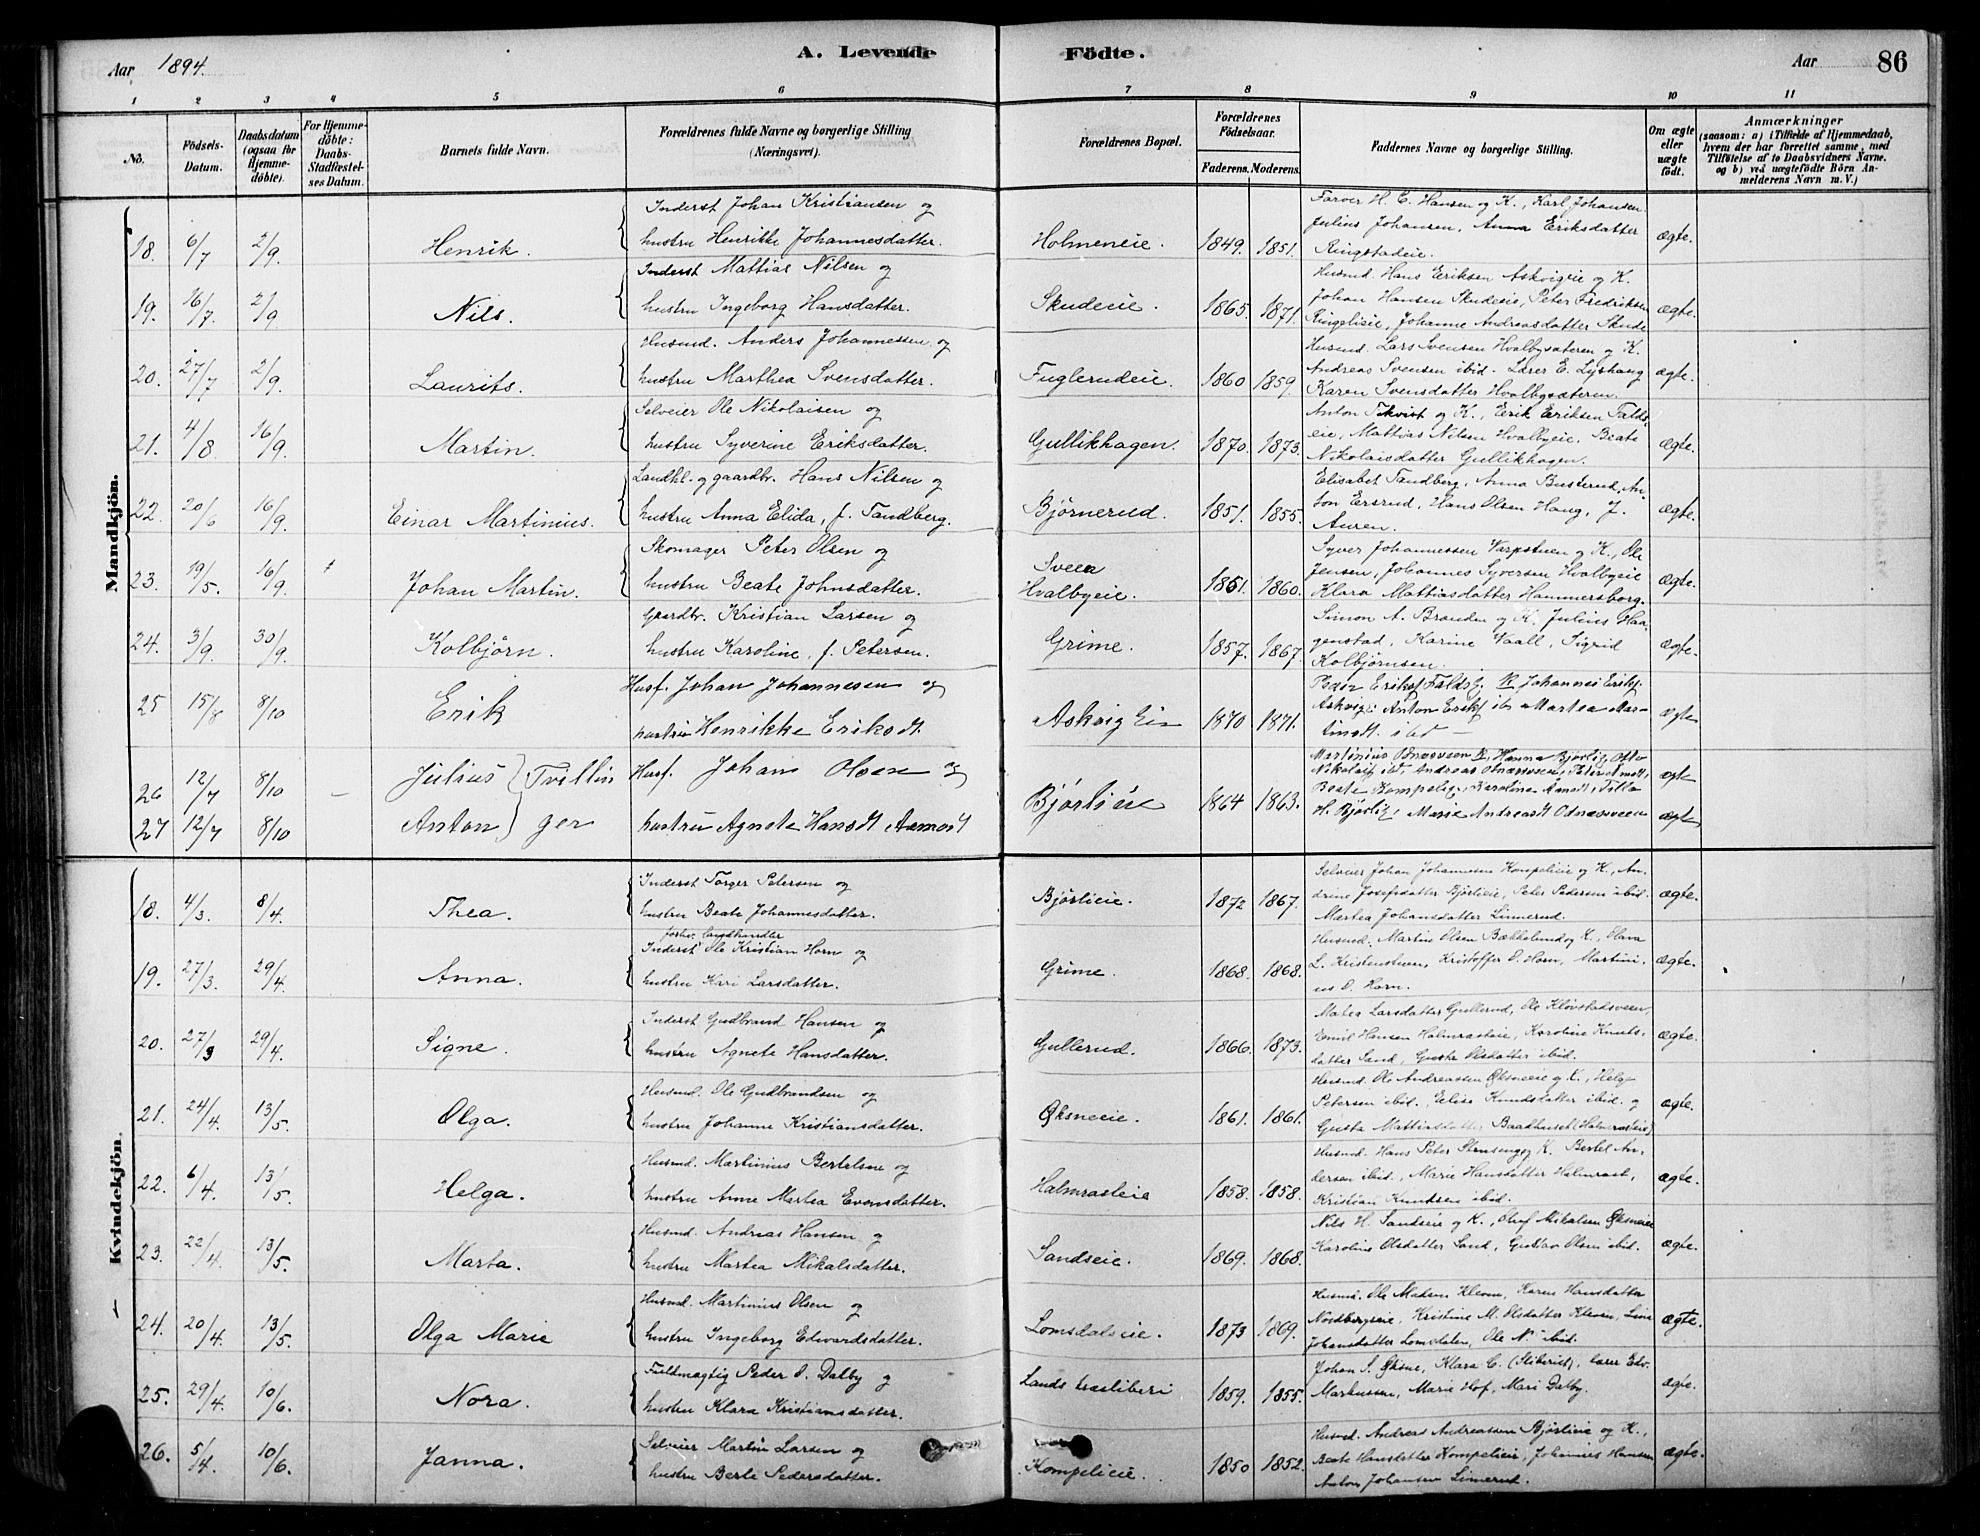 Aar 1894. A. Levende Födte. Aar 86
1 2 3 4 5 6 7 8 9 10 11
No. Födsels-Datum. Daabsdatum (ogsaa for Hjemmedöbte). For Hjemmedöbte: Daabs-Stadfæstelses Datum. Barnets fulde Navn. Forældrenes fulde Navne og borgerlige Stilling (Næringsvei). Forældrenes Bopæl. Forældrenes Födselsaar. Faderens. Moderens. Faddernes Navne og borgerlige Stilling. Om ægte eller uægte födt. Anmærkninger (saasom: a) i Tilfælde af Hjemmedaab, hvem der har forrettet samme, med Tilföielse af to Daabsvidners Navne, og b) ved uægtefödte Börn Anmelderens Navn m. V.)
Mandkjön.
Inderst Johan Kristiansen og Farver H. E. Hansen og K., Karl Johansen
18. 6/7 2/9. Henrik. hustru Henrikke Johannesdatter. Holmeneie. 1849. 1851. Julius Johansen, Anna Eriksdatter ægte.
Ringstadeie.
Inderst Mattias Nilsen og Husmd. Hans Eriksen Askvigeie og K.
19. 16/7. 2/9 Nils. hustru Ingeborg Hansdatter. Skudeeie. 1865. 1871. Johan Hansen Skudeeie, Peter Fredriksen ægte.
Ringelieie, Johanne Andreasdatter Skude
Husmd. Anders Johannessen og Husmd. Lars Svensen Hvalbysæteren og K.
20. 27/7 2/9. Laurits. hustru Marthea Svensdatter. Fuglerudeie. 1860 1859. Andreas Svensen ibid. Lærer E. Lyshaug ægte.
Karen Svensdatter Hvalbysæteren.
Selveier Ole Nikolaisen og Anton Tekvist og K., Erik Eriksen Falds
21. 4/8 16/9. Martin. hustru Syverine Eriksdatter. Gullikhagen. 1870. 1873. eie, Mattias Nilsen Hvalbyeie. Beate ægte.
Nikolaisdatter Gullikhagen.
Landhl. og gaardbr. Hans Nilsen og Elisabet Tandberg, Anna Busterud, An-
22. 20/6 16/9. Einar Martinius. hustru Anna Elida, f. Tandberg. Bjørnerud. 1851. 1855. ton Ersrud, Hans Olsen Haug, J. ægte.
Auren.
Skomager Peter Olsen og Svea Syver Johannessen Varpstuen og K., Ole
23. 19/5. 16/9. † Johan Martin. hustru Beate Johnsdatter. Hvalbyeie. 1861. 1860. Jensen, Johannes Syversen Hvalbyeie ægte.
Klara Mattiasdatter Hammersborg.
Gaardbr. Kristian Larsen og Simon A. Brænden og K. Julius Haa-
24. 3/9. 30/9. Kolbjörn. hustru Karoline, f. Petersen. Grime. 1857. 1867. genstad, Karine Vaall, Sigrid ægte.
Kolbjørnsen.
Husf. Johan Johannesen og
25 15/8 8/10 Erik hustru Henrikke Eriksdt. Askvig Eie 1870 1871. ægte
26 12/7 8/10 — Julius } Tvillin Husf. Johan Olsen og Bjørlieie 1864 1863. ægte
27 12/7 8/10 Anton } ger hustru Agnete Hansdt Aamodt H. Bjørlig, Marie Andreasdt Odnæsveen ægte
Kvindekjön.
Inderst Torger Petersen og Selveier Johan Johannesen Kompelieie og K., An-
18. 4/3. 8/4. Thea. hustru Beate Johannesdatter. Bjørlieie. 1872 1867. drine Josefsdatter Bjørlieie, Peter Pedersen ibid. ægte.
Martea Johansdatter Linnerud.
forhv. landhandler
Inderst Ole Kristian Horn og Husmd. Martin Olsen Bækkelund og K., Olava
19. 27/3. 29/4. Anna. hustru Kari Larsdatter. Grime. 1868. 1868. L. Kristenstuen, Kristoffer O. Horn, Martini- ægte.
us O. Horn.
Inderst Gudbrand Hansen og Matea Larsdatter Gullerud, Ole Kløvstadsveen,
20. 27/3 29/4. Signe. hustru Agnete Hansdatter. Gullerud. 1866. 1873. Emil Hansen Halmrasteie, Karoline Knuts- ægte.
datter Sand, Gusta Olsdatter ibid.
Husmd. Ole Gudbrandsen og Husmd. Ole Andreassen Øksneeie og K., Helge
21. 24/4. 13/5. Olga. hustru Johanne Kristiansdatter. Øksneeie. 1861. 1861. Petersen ibid., Eelise Knudsdatter ibid. og ægte.
Gusta Mattiasdatter Baadhuset (Halmrasteie)
Husmd. Martinius Bertelsen og Husmd. Hans Peter Stenseng og K. Bertel An-
22. 6/4. 13/5. Helga. hustru Anne Martea Evensdatter. Halmrasteie 1858. 1858. dersen ibid., Marie Hansdatter Halmrast, ægte.
Kristian Knutsen ibid.
Husmd. Andreas Hansen og Nils H. Sandseie og K., Oluf Mikalsen Øksneeie
23. 22/4. 13/5. Marta. hustru Martea Mikalsdatter. Sandseie. 1869. 1868. Karoline Olsdatter Sand, Gustav Olsen ibid. ægte.
Husmd. Martinius Olsen og Husmd. Ole Madsen Kleven, Karen Hansdatter
24. 20/4. 13/5. Olga Marie hustru Ingeborg Edvardsdatter. Lomsdalseie. 1873 1869. Nordbergseie, Kristine M. Olsdatter Kleven, Lina ægte.
Johansdatter Lomsdalen, Ole N. ibid.
Fuldmægtig Peder O. Dalby og Johan S. Øksne, Klara C. (Sliberiet), Lærer Edv.
25. 29/4. 10/6. Nora. hustru Klara Kristiansdatter. Lands træsliberi 1859. 1855. Markussen, Marie Hof, Mari Dalby. ægte.
Selveier Martin Larsen og Husmd. Andreas Andreassen Bjørlieie og K.,
26. 5/4. 10/6. Janna. hustru Berte Pedersdatter. Kompelieie. 1850 1852. Beate Hansdatter Kompelieie, Johannes Hansen ægte.
Anton Johansen Linnerud.